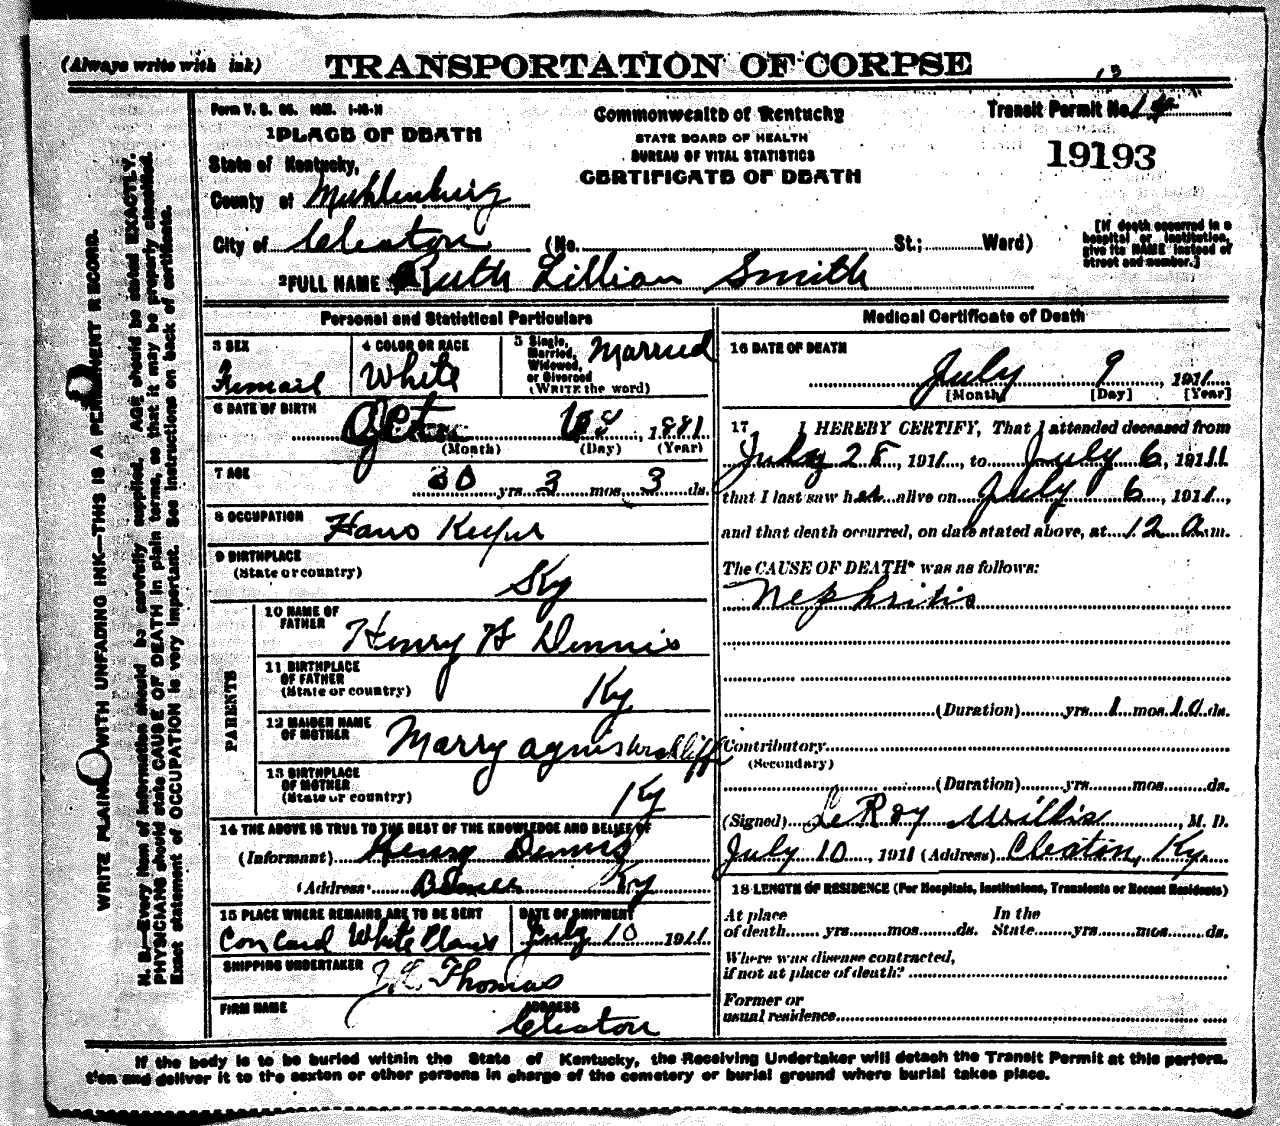 (Always write with ink)
TRANSPORTATION OF CORPSE
Form V. S.
Commonwealth of Kentucky
STATE BOARD OF HEALTH
BUREAU OF VITAL STATISTICS
CERTIFICATE OF DEATH
Transit Permit No.
19193
1 PLACE OF DEATH
State of Kentucky,
County of Muhlenburg
City of Cleaton (No. St.; Ward)
[If death occurred in a
hospital or institution,
give its NAME instead of
street and number.]
2 FULL NAME Ruth Lillian Smith
Personal and Statistical Particulars
3 SEX Femail
4 COLOR OR RACE White
5 Single, Married, Widowed, or Divorced (WRITE the word) Married
6 DATE OF BIRTH 1881
(Month) (Day) (Year)
7 AGE 30 yrs. 3 mos. 3 ds.
8 OCCUPATION Haws Keefur
9 BIRTHPLACE
(State or country) Ky
PARENTS
10 NAME OF FATHER Henry H Dennis
11 BIRTHPLACE OF FATHER
(State or country) Ky
12 MAIDEN NAME OF MOTHER Marry agnis
13 BIRTHPLACE OF MOTHER
(State or country) Ky
14 THE ABOVE IS TRUE TO THE BEST OF THE KNOWLEDGE AND BELIEF OF
(Informant) Henry Dennis
(Address) Ky
15 PLACE WHERE REMAINS ARE TO BE SENT
Concard White Plans
DATE OF SHIPMENT
July 10 1911
SHIPPING UNDERTAKER
Thomas
FIRM NAME
ADDRESS
Cleaton
Medical Certificate of Death
16 DATE OF DEATH
July 9, 1911
[Month] [Day] [Year]
17 I HEREBY CERTIFY, That I attended deceased from
July 28, 1911, to July 6, 1911
that I last saw her alive on July 6, 1911,
and that death occurred, on date stated above, at 12 a.m.
The CAUSE OF DEATH* was as follows:
Nephritis
(Duration) yrs. 1 mos. 10 ds.
Contributory
(Secondary)
(Duration) yrs. mos. ds.
(Signed) LeRoy Willis, M. D.
July 10, 1911 (Address) Cleaton, Ky.
18 LENGTH OF RESIDENCE (For Hospitals, Institutions, Transients or Recent Residents)
At place of death yrs. mos. ds. In the State yrs. mos. ds.
Where was disease contracted,
if not at place of death?
Former or
usual residence
If the body is to be buried within the State of Kentucky, the Receiving Undertaker will detach the Transit Permit at this perfora-
tion and deliver it to the sexton or other persons in charge of the cemetery or burial ground where burial takes place.
WRITE PLAINLY WITH UNFADING INK—THIS IS A PERMANENT RECORD.
N. B.—Every item of information should be carefully supplied. AGE should be stated EXACTLY.
PHYSICIANS should state CAUSE OF DEATH in plain terms, so that it may be properly classified.
Exact statement of OCCUPATION is very important. See instructions on back of certificate.